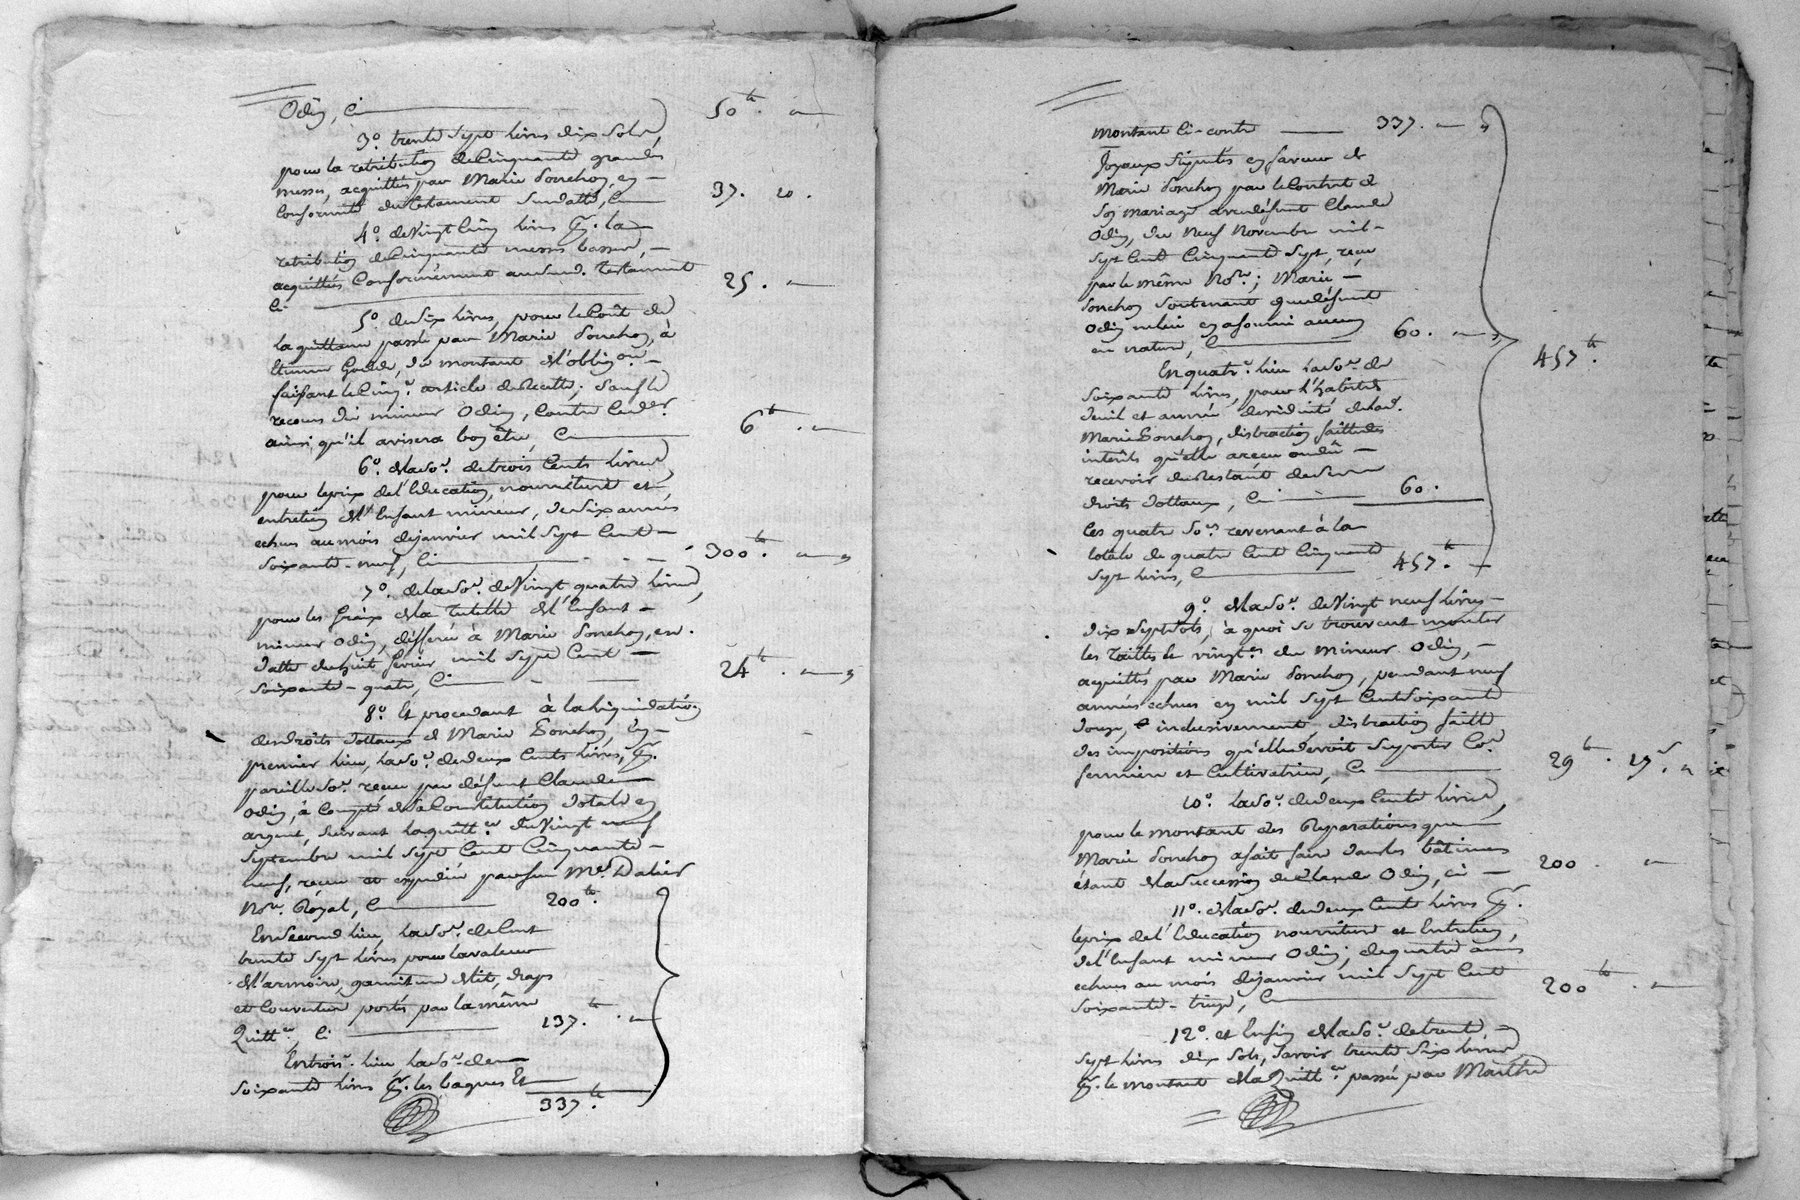 Odin, Ci 50 ᵗᵗ.
3º. trente Sept livres dix Sols,
pour la retribution de Cinquante grandes
messes, acquittées par Marie Ponchon, en
Conformité du testament Sus datté, Ci 37. 10.
4º. de Vingt Cinq livres pr. la
retribution de Cinquante messes basses,
acquittées Conformément audit. Testament
Ci 25.
5º. de Six livres, pour le Coût de
la quittance passée par Marie Ponchon, à
Etienne, du montant de l'oblig.on
faisant le Cinq.e article de Recette; Sauf le
recours du mineur Odin, Contre
ainsi qu'il avisera bon être, Ci 6 ᵗᵗ.
6º. de la So.e de trois Cents livres,
pour le prix de l'Education, nourriture et
entretien de l'Enfant mineur, de Six années
echues au mois de janvier mil Sept Cent
Soixante-neuf, Ci 300 ᵗᵗ.
7º. de la So.e de Vingt quatre livres,
pour les fraix de la Tutelle de l'Enfant
mineur Odin, differée à Marie Ponchon, en
datte du huit fevrier mil Sept Cent
Soixante-quatre, Ci 24 ᵗᵗ.
8º. Et procedant à la Liquidation
des droits dottaux de Marie Ponchon, En
premier lieu, la So.e de deux Cents livres, pr.
pareille So.e recue par défunt Claude
Odin, à Compte de la Constitution dotale en
argent, Suivant la quitt.ce du Vingt neuf
Septembre mil Sept Cent Cinquante
neuf, recue et expediée par feu Me. Dalier
No.re Royal, Ci 200 ᵗᵗ.
En Second lieu, la So.e de Cent
trente Sept livres pour la valeur
de l'armoire, garniture de lit, draps
et Couverture portés par la même
Quitt.ce, Ci 137. ᵗᵗ
En trois.e lieu, la So.e de
Soixante livres pr. les bagues Et
337. ᵗᵗ
Montant Ci-contre 337.
Joyaux Stipulés en faveur de
Marie Ponchon par le Contrat de
Son mariage avec défunt Claude
Odin, du Neuf Novembre mil
Sept Cent Cinquante Sept, recu
par le même No.re; Marie
Ponchon Soutenant que défunt
Odin ne lui en a fourni aucun
en nature, Ci 60.
457 ᵗᵗ.
En quatr.e lieu la So.e de
Soixante livres, pour l'habit de
deuil et année de viduité de lad.
Marie Ponchon, distraction faitte des
interêts qu'elle a recu ou dû
recevoir du Restant de Ses
droits dottaux, Ci 60.
Les quatre So.es revenant à la
totale de quatre Cent Cinquante
Sept livres, Ci 457. ᵗᵗ
9º. de la So.e de Vingt neuf livres
dix Sept Sols, à quoi Se trouvent monter
les Tailles & vingt.es du mineur Odin,
acquittés par Marie Ponchon, pendant neuf
années echues en mil Sept Cent Soixante
douze, inclusivement, distraction faitte
des impositions qu'elle devoit Suporter Co.e
fermiere et Cultivatrice, Ci 29 ᵗᵗ. 17 s.
10º. la So.e de deux Cents livres,
pour le montant des Reparations que
Marie Ponchon a fait faire dans les bâtimens
étant de la Succession de Claude Odin, ci 200.
11º. de la So.e de deux Cents livres pr.
le prix de l'Education nourriture et Entretien,
de l'Enfant mineur Odin; de quatre années
echues au mois de janvier mil Sept Cent
Soixante-treize, Ci 200 ᵗᵗ.
12º. et Enfin de la So.e de trente
Sept livres dix Sols, Savoir trente Six livres
pr. le montant de la Quitt.ce passée par Marthe